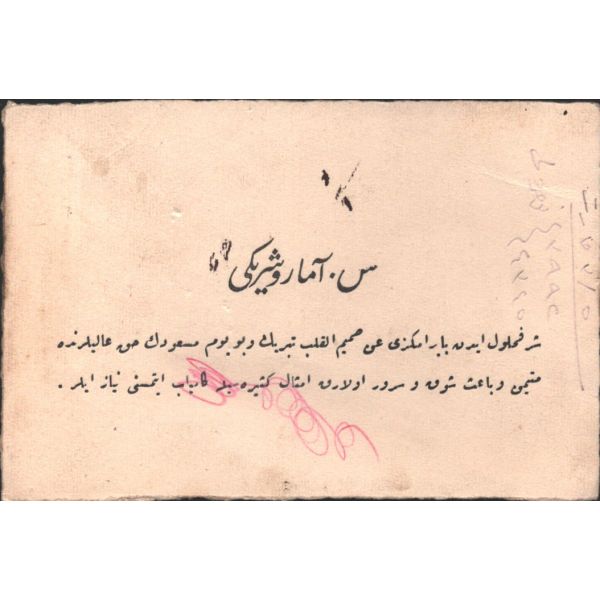 س . آمار و شریکی
شرفحلول ایدن بایرامکزی عن صمیم القلب تبریك و بو یوم مسعودك حق عالیلرنده
متیمن و باعث شوق و سرور اولارق امثال کثیره سیله کامیاب ایتمسنی نیاز ایلر .